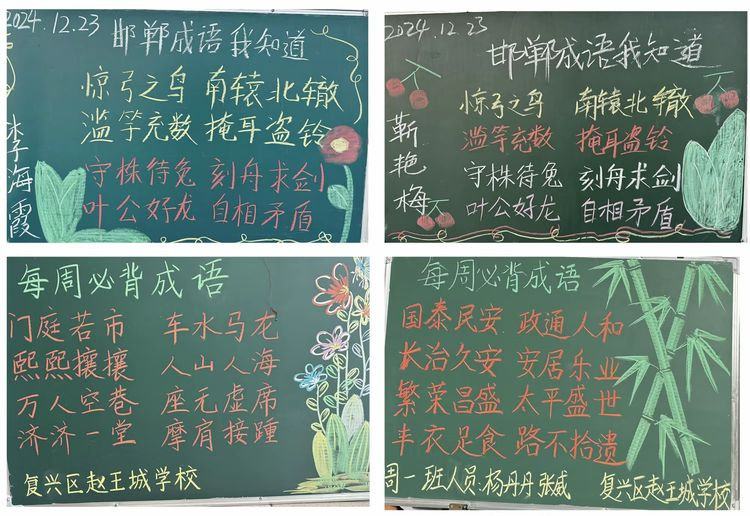 2024.12.23
邯郸成语我知道
惊弓之鸟 南辕北辙
滥竽充数 掩耳盗铃
守株待兔 刻舟求剑
叶公好龙 自相矛盾
李海霞
2024.12.23
邯郸成语我知道
惊弓之鸟 南辕北辙
滥竽充数 掩耳盗铃
守株待兔 刻舟求剑
叶公好龙 自相矛盾
靳艳梅
每周必背成语
门庭若市 车水马龙
熙熙攘攘 人山人海
万人空巷 座无虚席
济济一堂 摩肩接踵
复兴区赵王城学校
每周必背成语
国泰民安 政通人和
长治久安 安居乐业
繁荣昌盛 太平盛世
丰衣足食 路不拾遗
周一班人员:杨丹丹张威 复兴区赵王城学校